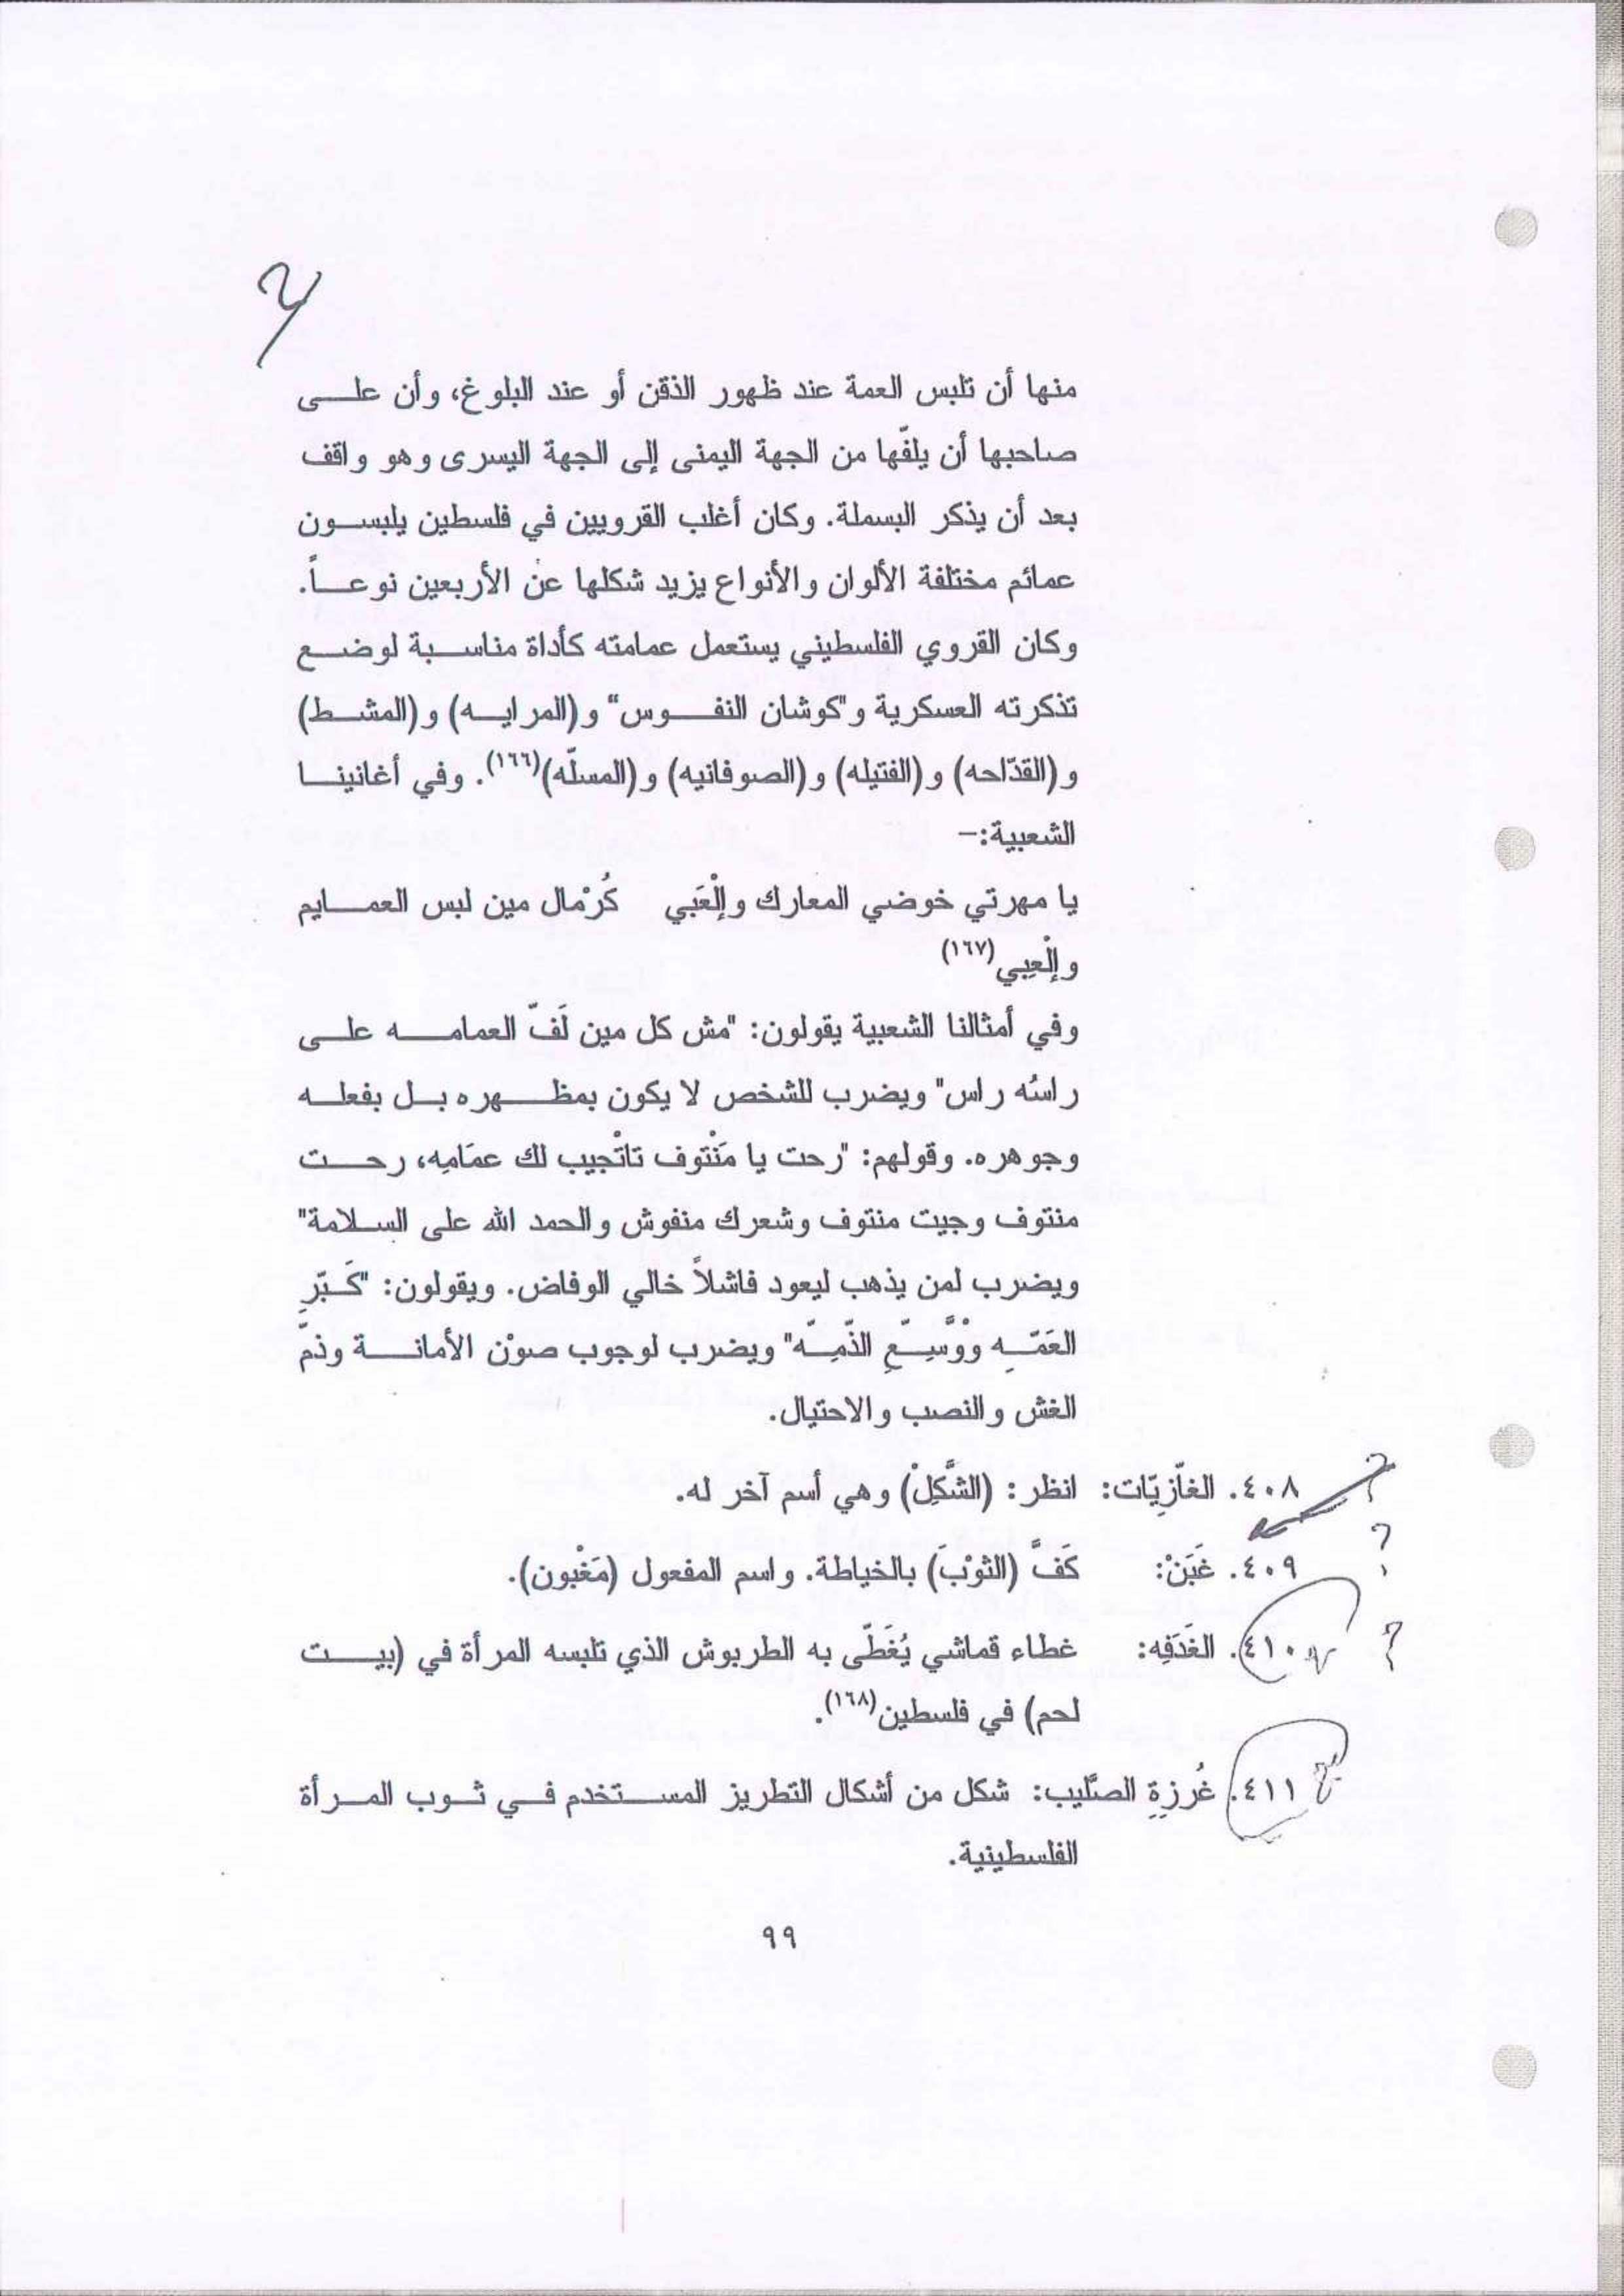 منها أن تلبس العمة عند ظهور الذقن أو عند البلوغ، وأن على
صاحبها أن يلفّها من الجهة اليمنى إلى الجهة اليسرى وهو واقف
بعد أن يذكر البسملة. وكان أغلب القرويين في فلسطين يلبسون
عمائم مختلفة الألوان والأنواع يزيد شكلها عن الأربعين نوعاً.
وكان القروي الفلسطيني يستعمل عمامته كأداة مناسبة لوضع
تذكرته العسكرية و"كوشان النفوس" و(المرايه) و(المشط)
و(القدّاحه) و(الفتيله) و(الصوفانيه) و(المسلّه)(١٦٦). وفي أغانينا
الشعبية:–
يا مهرتي خوضي المعارك وإلْعَبي كُرْمال مين لبس العمايم
وإلْعِبي(١٦٧)
وفي أمثالنا الشعبية يقولون: "مش كل مين لَفّ العمامه على
راسُه راس" ويضرب للشخص لا يكون بمظهره بل بفعله
وجوهره. وقولهم: "رحت يا مَنْتوف تاتْجيب لك عمَامِه، رحت
منتوف وجيت منتوف وشعرك منفوش والحمد الله على السلامة"
ويضرب لمن يذهب ليعود فاشلاً خالي الوفاض. ويقولون: "كَبّرِ
العَمّه وْوَسِّعِ الذّمِّه" ويضرب لوجوب صوْن الأمانة وذمّ
الغش والنصب والاحتيال.
٤٠٨. الغاّزِيّات: انظر: (الشَّكِلْ) وهي أسم آخر له.
٤٠٩. غَبَنْ: كَفَّ (الثوْبَ) بالخياطة. واسم المفعول (مَغْبون).
٤١٠. الغَدَفِه: غطاء قماشي يُغَطّى به الطربوش الذي تلبسه المرأة في (بيت
لحم) في فلسطين(١٦٨).
٤١١. غُرزِةِ الصَّليب: شكل من أشكال التطريز المستخدم في ثوب المرأة
الفلسطينية.
٩٩